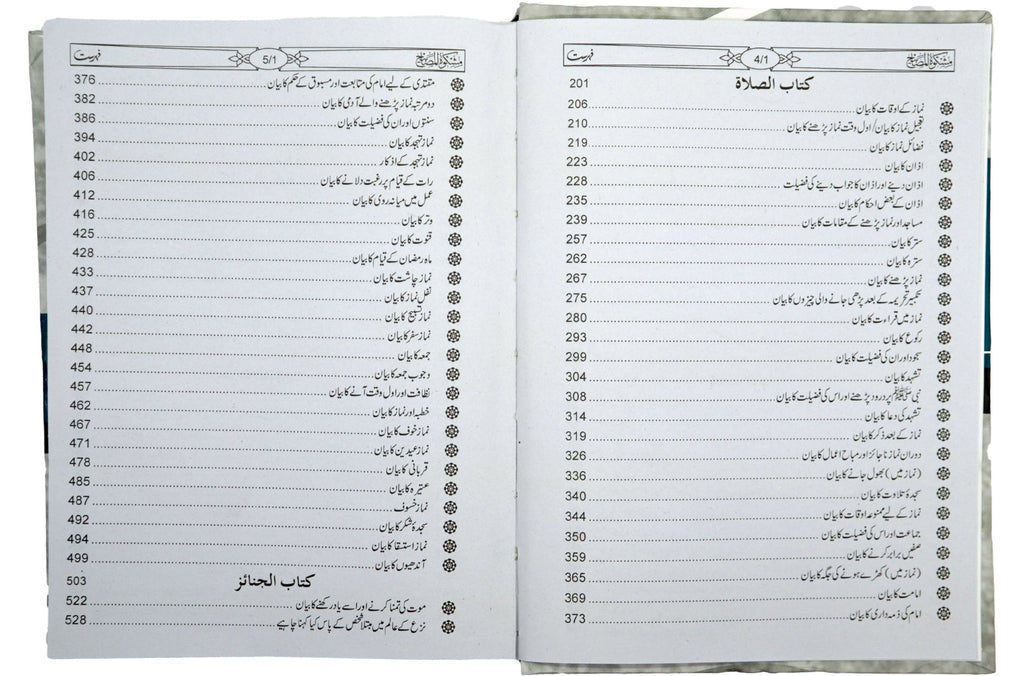 مشکوٰۃ المصابیح 4/1 فہرست
کتاب الصلاة 201
نماز کے اوقات کا بیان 206
تعجیل نماز کا بیان/ اول وقت نماز پڑھنے کا بیان 210
فضائل نماز کا بیان 219
اذان کا بیان 223
اذان دینے اور اذان کا جواب دینے کی فضیلت 228
اذان کے بعض احکام کا بیان 235
مساجد اور نماز پڑھنے کے مقامات کا بیان 239
ستر کا بیان 257
سترہ کا بیان 262
نماز پڑھنے کا بیان 267
تکبیر تحریمہ کے بعد پڑھی جانے والی چیزوں کا بیان 275
نماز میں قراءت کا بیان 280
رکوع کا بیان 293
سجود اور ان کی فضیلت کا بیان 299
تشہد کا بیان 304
نبی ﷺ پر درود پڑھنے اور اس کی فضیلت کا بیان 308
تشہد کی دعا کا بیان 314
نماز کے بعد ذکر کا بیان 319
دوران نماز ناجائز اور مباح اعمال کا بیان 326
(نماز میں) بھول جانے کا بیان 336
سجدۂ تلاوت کا بیان 340
نماز کے لیے ممنوعہ اوقات کا بیان 344
جماعت اور اس کی فضیلت کا بیان 350
صفیں برابر کرنے کا بیان 359
(نماز میں) کھڑے ہونے کی جگہ کا بیان 365
امامت کا بیان 369
امام کی ذمہ داری کا بیان 373
مشکوٰۃ المصابیح 5/1 فہرست
مقتدی کے لیے امام کی متابعت اور مسبوق کے حکم کا بیان 376
دو مرتبہ نماز پڑھنے والے آدمی کا بیان 382
سنتوں اور ان کی فضیلت کا بیان 386
نماز تہجد کا بیان 394
نماز تہجد کے اذکار 402
رات کے قیام پر رغبت دلانے کا بیان 406
عمل میں میانہ روی کا بیان 412
وتر کا بیان 416
قنوت کا بیان 425
ماہ رمضان کے قیام کا بیان 428
نماز چاشت کا بیان 433
نفل نماز کا بیان 437
نماز تسبیح کا بیان 440
نماز سفر کا بیان 442
جمعہ کا بیان 448
وجوب جمعہ کا بیان 454
نظافت اور اول وقت آنے کا بیان 457
خطبہ اور نماز کا بیان 462
نماز خوف کا بیان 467
نماز عیدین کا بیان 471
قربانی کا بیان 478
عتیرہ کا بیان 485
نماز خسوف 487
سجدۂ شکر کا بیان 492
نماز استسقا کا بیان 494
آندھیوں کا بیان 499
کتاب الجنائز 503
موت کی تمنا کرنے اور اسے یاد رکھنے کا بیان 522
نزع کے عالم میں مبتلا شخص کے پاس کیا کہنا چاہیے 528